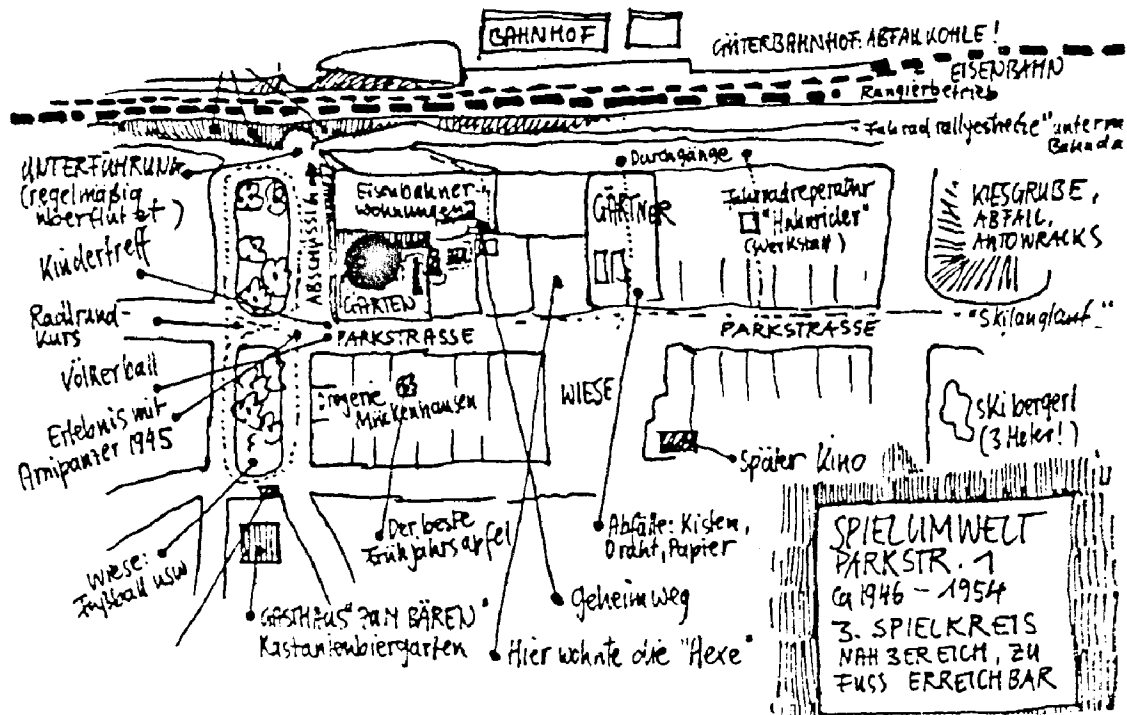 BAHNHOF
GÜTERBAHNHOF: ABFALLKOHLE!
EISENBAHN
Rangierbetrieb
"Fahrradrallyestrecke" unterm
Bahnda
UNTERFÜHRUNG
(regelmäßig
überflutet)
Kindertreff
Radlrund-
kurs
Völkerball
Erlebnis mit
Amipanzer 1945
Wiese:
Fußball usw
ABSCHÜSSIG
Eisenbahner
wohnungen
GARTEN
Durchgänge
GÄRTNER
Fahrradreperatur
(Werkstatt)
KIESGRUBE,
ABFALL,
AUTOWRACKS
PARKSTRASSE
PARKSTRASSE
"Skilanglauf"
Drogerie
Mückenhausen
WIESE
Später Kino
Skibergerl
(3 Meter!)
Der beste
Frühjahrsapfel
Abfälle: Kisten,
Draht, Papier
Geheimweg
GASTHAUS "ZUM BÄREN"
Kastanienbiergarten
Hier wohnte die "Hexe"
SPIELUMWELT
PARKSTR. 1
ca 1946 - 1954
3. SPIELKREIS
NAHBEREICH, ZU
FUSS ERREICHBAR